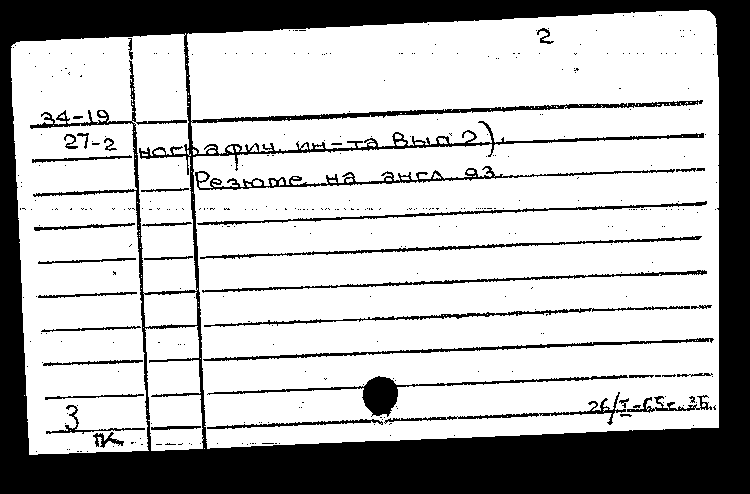 2
34-19
27-2 нографич. ин-та Вып 2).
Резюме на англ яз.
3
ПК
26/I-65г.